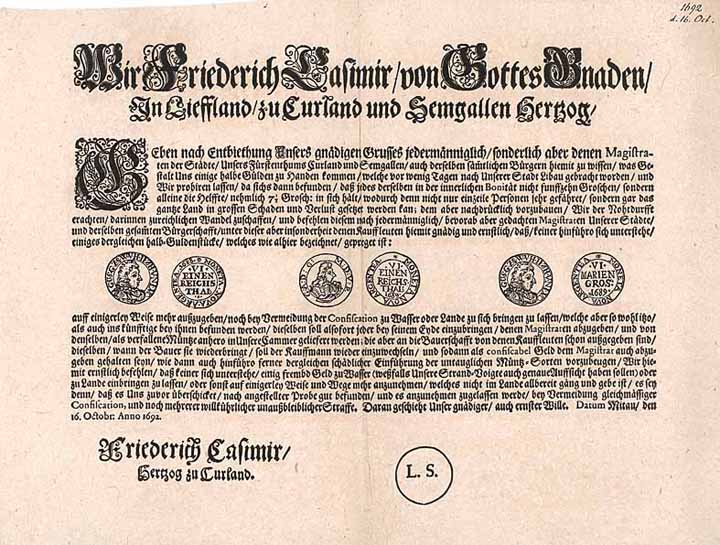 1692
d. 16. Oct.
Wir Friederich Casimir/von Gottes Gnaden/
In Lieffland/zu Curland und Semgallen Hertzog/
GEben nach Entbiethung Unsers gnädigen Grusses jedermänniglich/sonderlich aber denen Magistra-
ten der Städte/Unsers Fürstenthums Curland und Semgallen/auch derselben sämtlichen Bürgern hiemit zu wissen/was Ge-
stalt Uns einige halbe Gülden zu Handen kommen/welche vor wenig Tagen nach Unser Stadt Libau gebracht worden/und
Wir probiren lassen/da sichs dann befunden/daß jedes derselben in der innerlichen Bonität nicht funffzehn Groschen/sondern
alleine die Helffte/nehmlich 7½ Grosch: in sich hält/wodurch denn nicht nur einzele Personen sehr gefähret/sondern gar das
gantze Land in grossen Schaden und Verlust gesetzet werden kan: dem aber nachdrücklich vorzubauen/Wir der Nohtdurfft
erachten/darinnen zureichlichen Wandel zuschaffen/und befehlen diesem nach jedermänniglich/bevorab aber gedachten Magistraten Unserer Städte/
und derselben gesamten Bürgerschafft/unter dieser aber insonderheit denen Kauffleuten hiemit gnädig und ernstlich/daß/keiner hinführo sich unterstehe/
einiges dergleichen halb-Guldenstücke/welches wie alhier bezeichnet/gepreget ist:
VI
EINEN
REICHS
THAL
VI
EINEN
REICHS
THAL
VI
MARIEN
GROS:
1689
auff einigerley Weise mehr außzugeben/noch bey Vermeidung der Confiscation zu Wasser oder Lande zu sich bringen zu lassen/welche aber so wohl itzo/
als auch ins künfftige bey ihnen befunden werden/dieselben soll alsofort jeder bey seinem Eyde einzubringen/denen Magistraten abzugeben/und von
denselben/als verfallene Müntze anhero in Unser Cammer geliefert werden; die aber an die Bauerschafft von denen Kauffleuten schon außgegeben sind/
dieselben/wann der Bauer sie wiederbringt/soll der Kauffmann wieder einzuwechseln/und sodann als confiscabel Geld dem Magistrat auch abzu-
geben gehalten seyn/wie dann auch hinführo ferner dergleichen schädlicher Einführung der untauglichen Müntz-Sorten vorzubeugen/Wir hie-
mit ernstlich befehlen/daß keiner sich unterstehe/einig frembd Geld zu Wasser (weßfalls Unser Strand-Voigte auch genaue Auffsicht haben sollen) oder
zu Lande einbringen zu lassen/oder sonst auf einigerley Weise und Wege mehr anzunehmen/welches nicht im Lande allbereit gäng und gebe ist/es sey
denn/daß es Uns zuvor überschicket/nach angestellter Probe gut befunden/und es anzunehmen zugelassen werde/bey Vermeidung gleichmässiger
Confiscation, und noch mehrerer willkührlicher unaußbleiblicher Straffe. Daran geschieht Unser gnädiger/auch ernster Wille. Datum Mitau/den
16. Octobr: Anno 1692.
Friederich Casimir/
Hertzog zu Curland.
L. S.